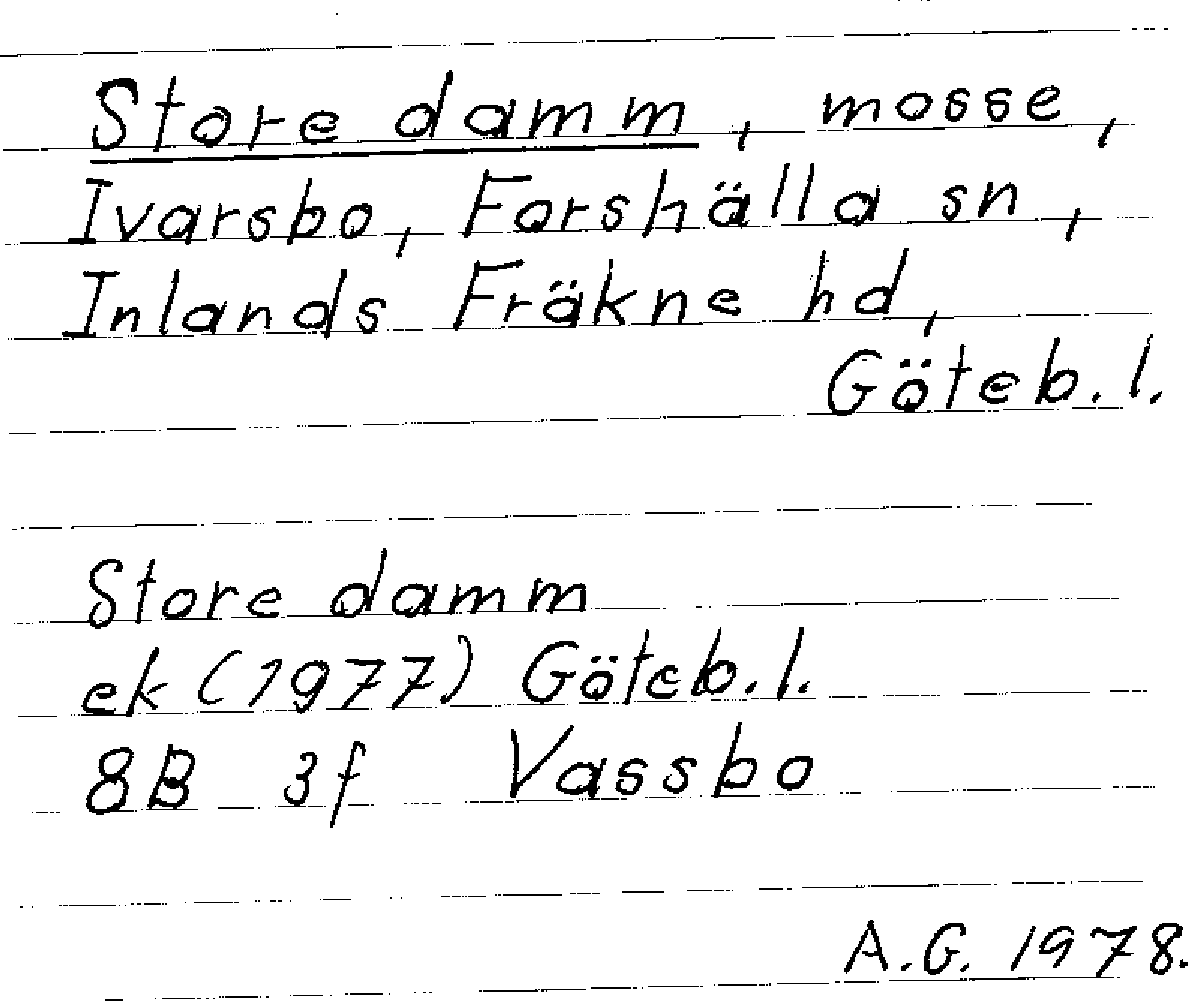 Store damm, mosse,
Ivarsbo, Forshälla sn,
Inlands Fräkne hd,
Göteb. l.
Store damm
ek (1977) Göteb. l.
8B 3f Vassbo
A.G. 1978.